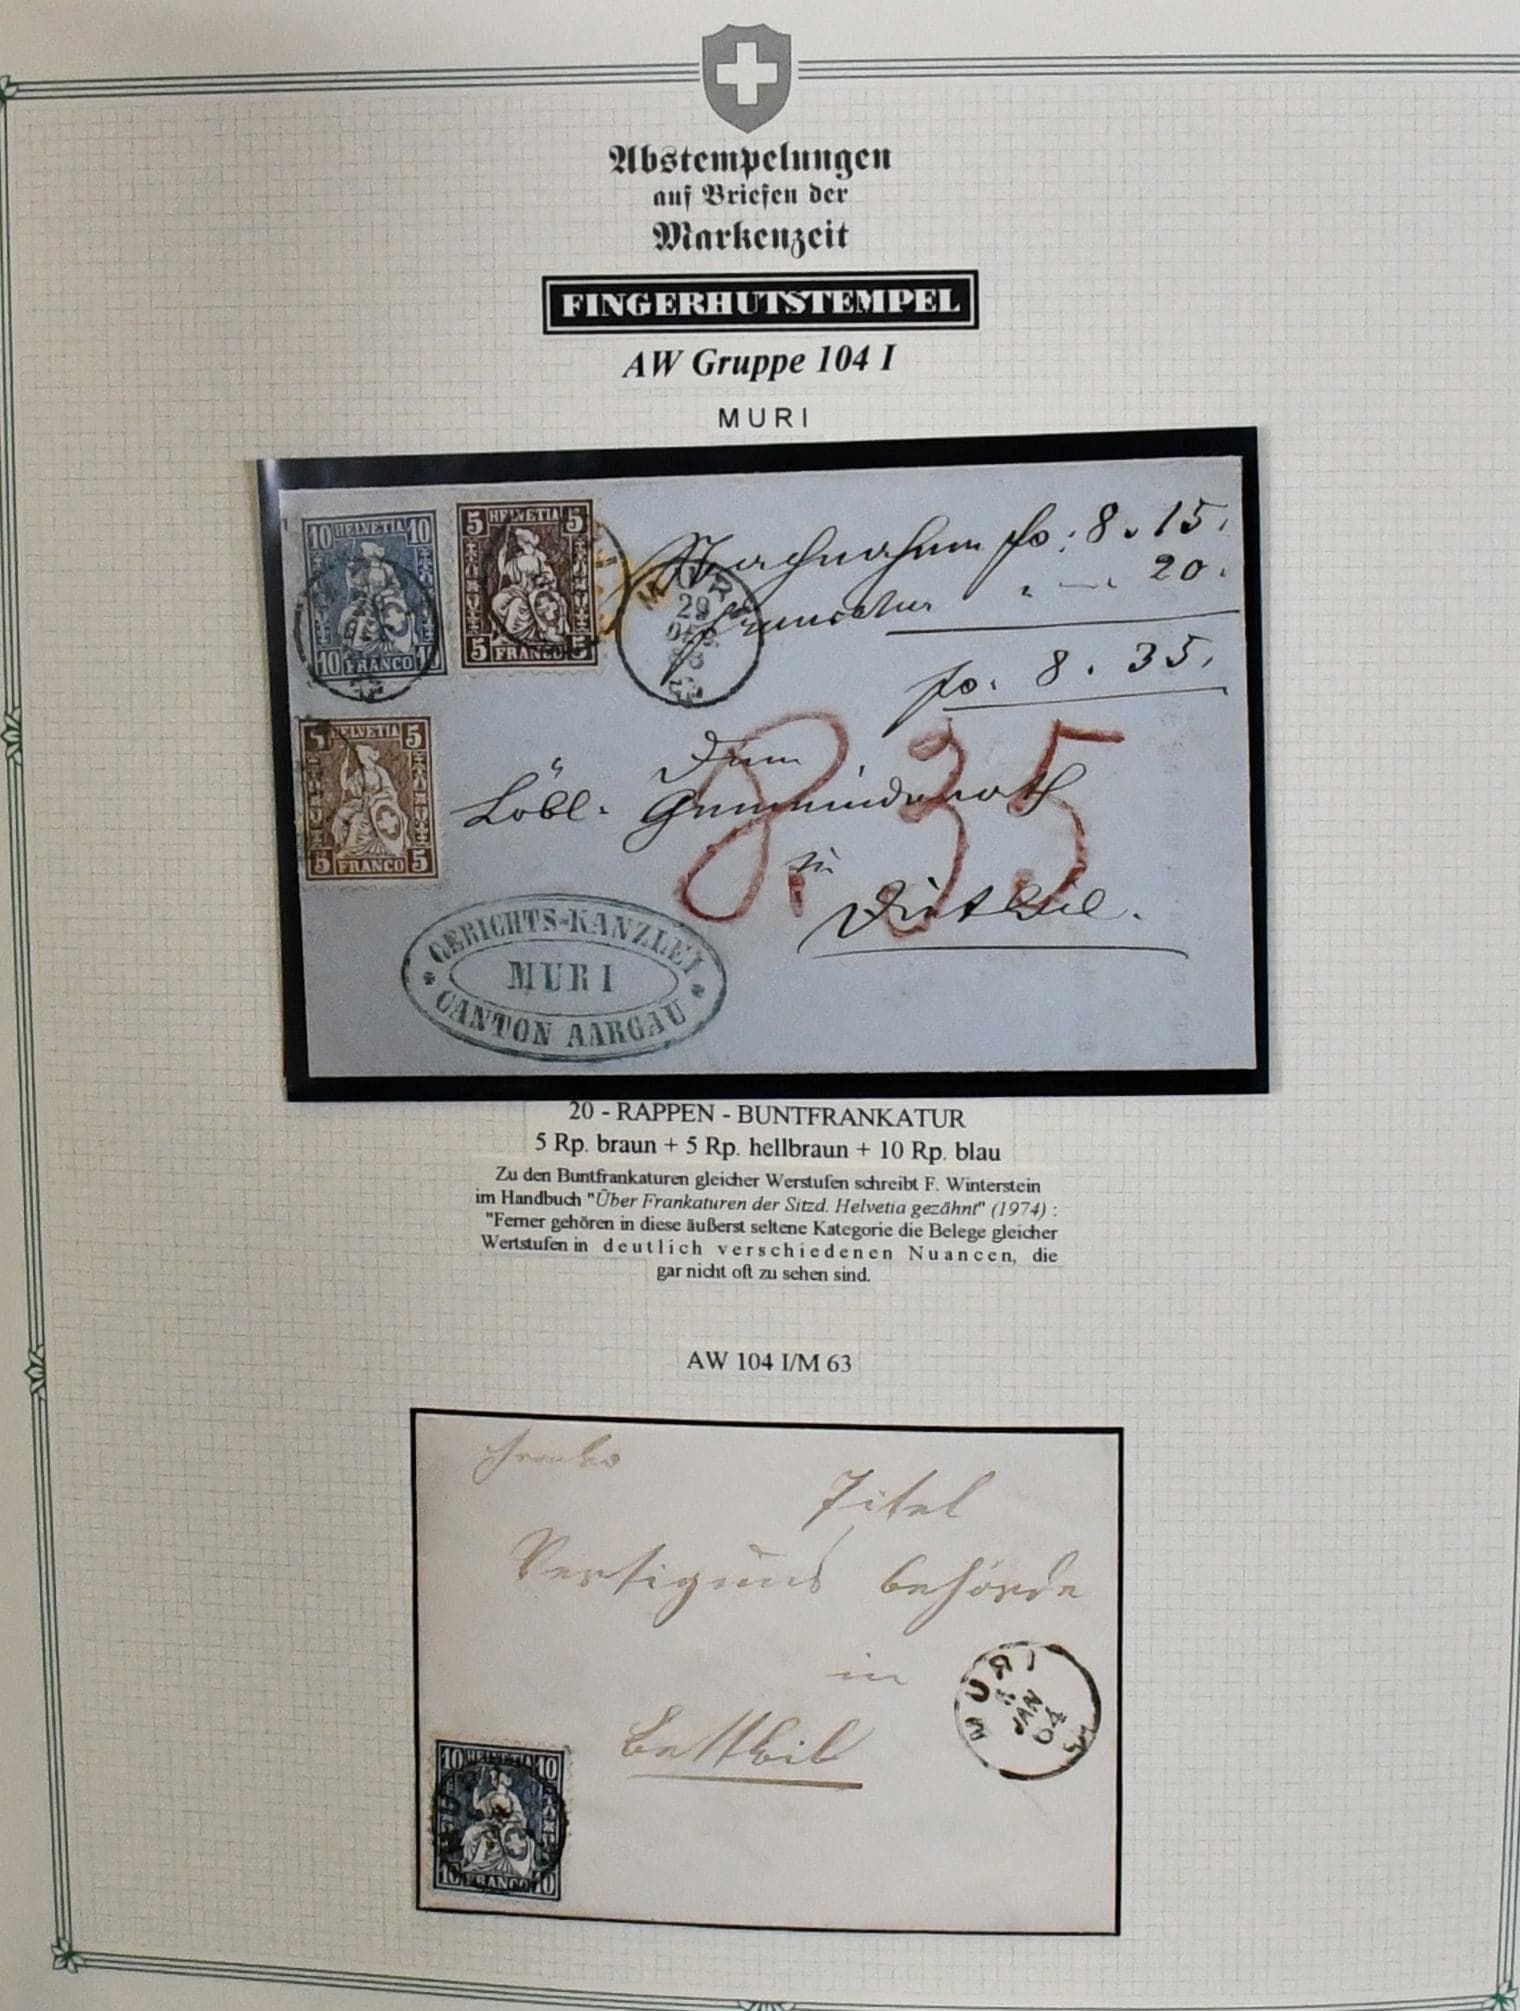 Abstempelungen
auf Briefen der
Markenzeit
FINGERHUTSTEMPEL
AW Gruppe 104 I
MURI
10 HELVETIA 10
10 FRANCO 10
5 HELVETIA 5
5 FRANCO 5
MURI
29
DEC
63
Nachnahme fo: 8. 15.
Francatur " — " 20.
fo. 8. 35.
8. 35
5 HELVETIA 5
5 FRANCO 5
Dem
Löbl. Gemeindsrath
in
GERICHTS-KANZLEI
MURI
CANTON AARGAU
20 - RAPPEN - BUNTFRANKATUR
5 Rp. braun + 5 Rp. hellbraun + 10 Rp. blau
Zu den Buntfrankaturen gleicher Werstufen schreibt F. Winterstein
im Handbuch "Über Frankaturen der Sitzd. Helvetia gezähnt" (1974) :
"Ferner gehören in diese äußerst seltene Kategorie die Belege gleicher
Wertstufen in deutlich verschiedenen Nuancen, die
gar nicht oft zu sehen sind.
AW 104 I/M 63
franko
Titel
behörde
in
Bettwil
MURI
JAN
64
10 HELVETIA 10
10 FRANCO 10